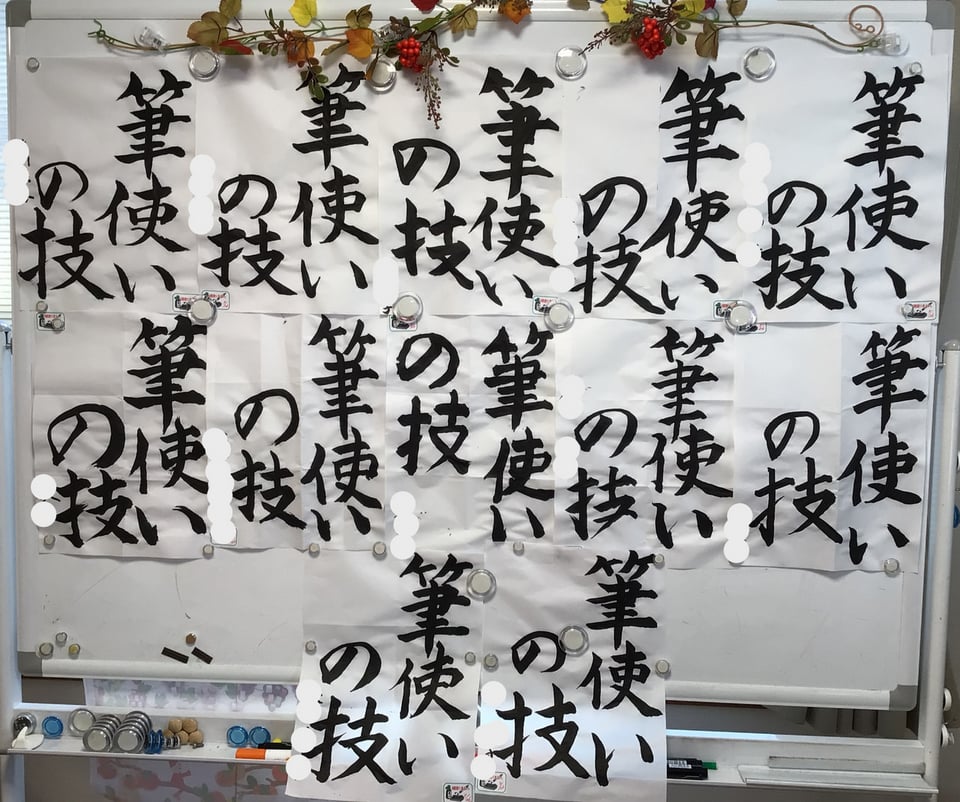 筆使い
の技
筆使い
の技
筆使い
の技
筆使い
の技
筆使い
の技
筆使い
の技
筆使い
の技
筆使い
の技
筆使い
の技
筆使い
の技
筆使い
の技
筆使い
の技